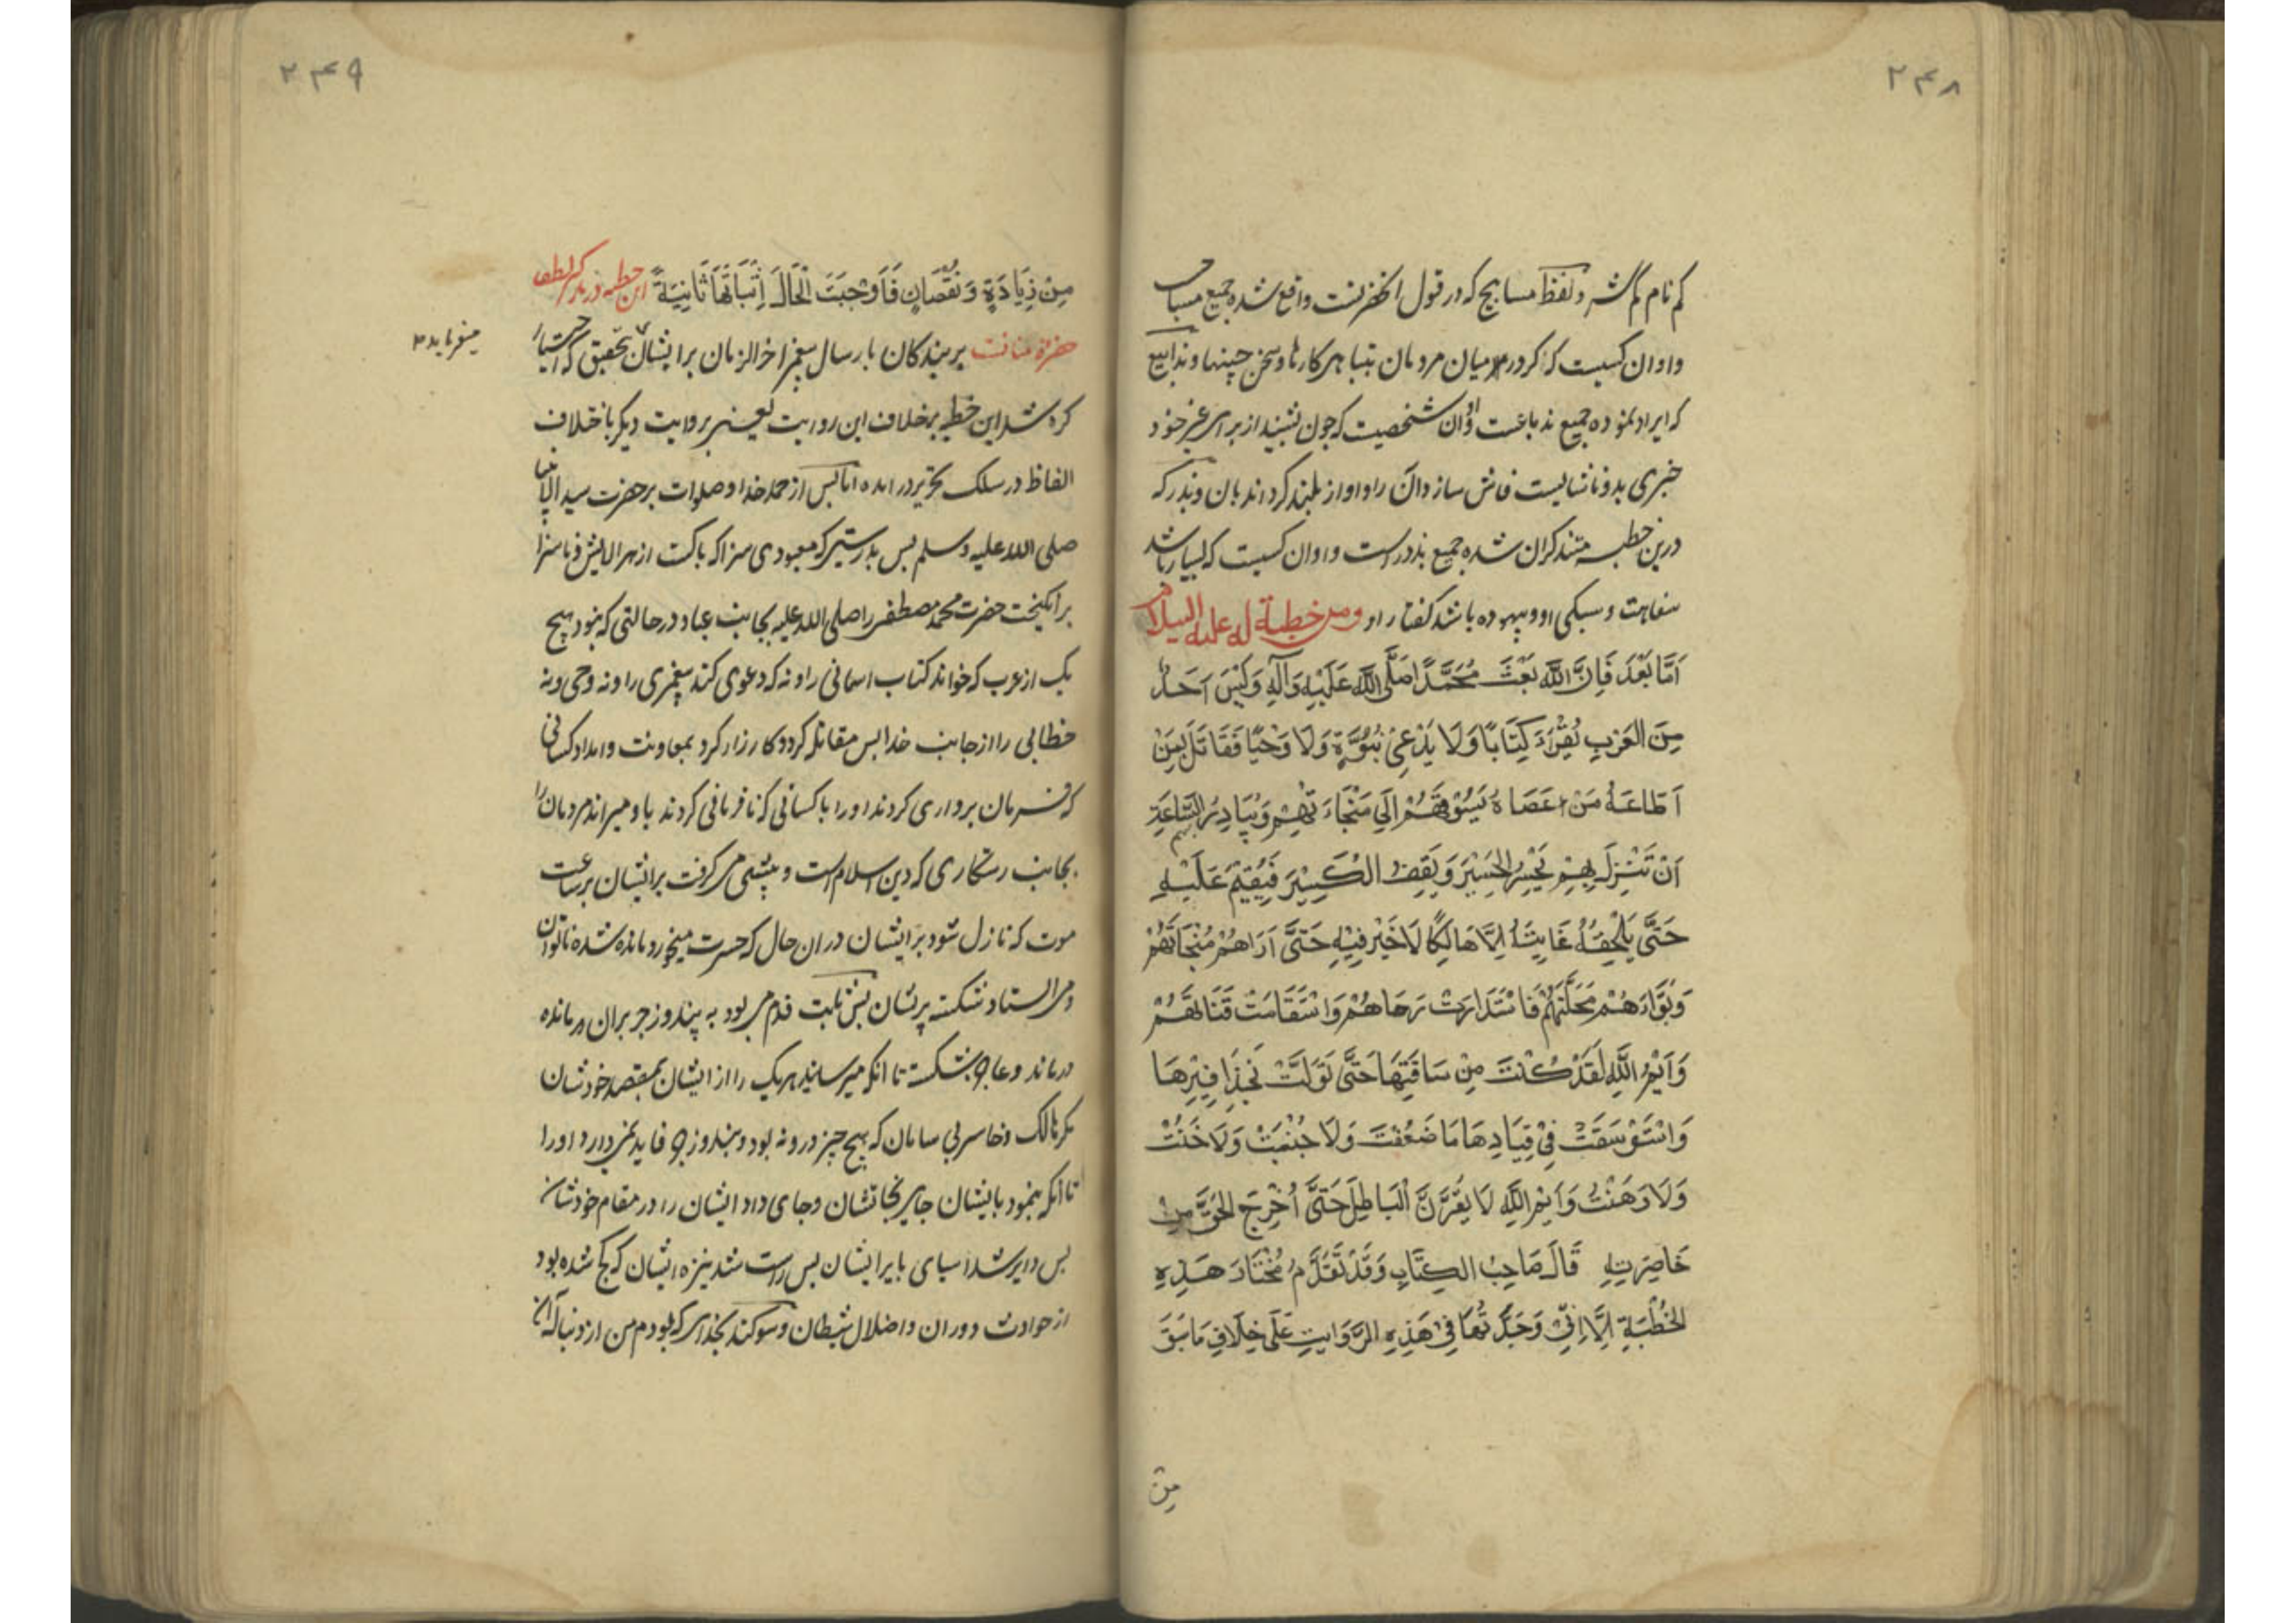 ۲۴۸
کم نام گم گشته و لفظ مسابیح که در قول آنحضرتست واقع شده جمیع مسیاح
واو ان کسیست که کردد در میان مردمان بتباهی کارها و سخن چینیها و بذابیع
که ایراد نموده جمیع بذباعست و اوان شخصیست که چون بشنید از برای غیر خود
خبری بد و ناشایست فاش سازد ان را و اواز بلند کرداند بان و بذر که
درین خطبه متذکران شده جمیع بذورست واوان کسیست که بسیار باشد
سفاهت و سبکی او و بیهوده باشد گفتار او ومن خطبة له علیه السلام
اَمَّا بَعْدَ فَاِنَّ اللّٰهَ بَعَثَ مُحَمَّدًا صَلَّی اللّٰهُ عَلَیْهِ وَآلِهِ وَلَیْسَ اَحَدٌ
مِنَ الْعَرَبِ یَقْرَءُ کِتَابًا وَلَا یَدَّعِیْ نُبُوَّةً وَلَا وَحْیًا فَقَاتَلَ بِمَنْ
اَطَاعَهُ مَنْ عَصَاهُ یَسُوْقُهُمْ اِلَی مَنْجَاءَتِهِمْ وَیُبَادِرُ بِهِمُ السَّاعَةَ
اَنْ تَنْزِلَ بِهِمْ یَحْسِرُ الْحَسِیْرُ وَیَقِفُ الْکَسِیْرُ فَیُقِیْمُ عَلَیْهِ
حَتَّی یُلْحِقَهُ غَایَتَهُ اِلَّا هَالِکًا لَا خَیْرَ فِیْهِ حَتَّی اَرَاهُمْ مَنْجَاتَهُمْ
وَبَوَّاَهُمْ مَحَلَّتَهُمْ فَاسْتَدَارَتْ رَحَاهُمْ وَاسْتَقَامَتْ قَنَاتُهُمْ
وَاَیْمُ اللّٰهِ لَقَدْ کُنْتُ مِنْ سَاقَتِهَا حَتَّی تَوَلَّتْ بِحَذَافِیْرِهَا
وَاسْتَوْسَقَتْ فِیْ قِیَادِهَا مَا ضَعُفْتُ وَلَا جَبُنْتُ وَلَا خُنْتُ
وَلَا وَهَنْتُ وَاَیْمُ اللّٰهِ لَا یَقُرَّنَّ الْبَاطِلَ حَتَّی اُخْرِجَ الْحَقَّ مِنْ
خَاصِرَتِهِ قَالَ صَاحِبُ الکِتَابِ وَقَدْ تَقَدَّمَ مُخْتَارُ هَذِهِ
الخُطْبَةِ اِلَّا اِنِّیْ وَجَدْتُهَا فِیْ هَذِهِ الرَّوَایَتِ عَلَی خِلَافِ مَا سَبَقَ
مِنْ
۲۴۹
مِنْ زِیَادَةٍ وَنُقْصَانٍ فَاَوْجَبَتَ الْحَالَ اِثْبَاتَهَا ثَانِیَةً این خطبه در ذکر لطف
حضرة منانست بر بندکان بارسال پیغمبر اخر الزمان بر ایشان بتحقیق که اختیار
میفرماید
کرده شد این خطبه بر خلاف این روایت یعنی بروایت دیگر باختلاف
الفاظ در سلک تحریر در امده اما پس از حمد خدا و صلوات بر حضرت سید الانبیا
صلی الله علیه وسلم پس بدرستیکه معبودی سزا که پاکست از هر الایش و ناسزا
برانکیخت حضرت محمد مصطفی را صلی الله علیه بجانب عباد در حالتی که نبود هیچ
یک از عرب که خواند کتاب اسمانی را و نه که دعوی کند پیغمبری را و نه وحی و نه
خطابی را از جانب خدا پس مقاتله کرد و کارزار کرد بمعاونت و امداد کسانی
که فرمان برداری کردند او را با کسانی که نافرمانی کردند باو میراند مردمان را
بجانب رستکاری که دین اسلام است و پیشی می کرفت بر ایشان بر ساعت
موت که نازل شود بر ایشان در ان حال که حسرت میخورد مانده شده ناتوان
و می ایستاد شکسته پریشان پس ثابت قدم می بود به پند و زجر بران درمانده
درماند و عاجز شکسته تا انکه میرسانید هریک را از ایشان بمقصد خودشان
مکر هالک و خاسر بی سامان که هیچ چیز در و نه بود و پند و زجر فایده نمی دارد او را
تا انکه بنمود بایشان جای نجاتشان و جای داد ایشان را در مقام خودشان
پس دایر شد اسیای بایر ایشان پس راست شد نیزه ایشان که کج شده بود
از حوادث دوران و اضلال شیطان و سوکند بخدای که بودم من از دنباله آن